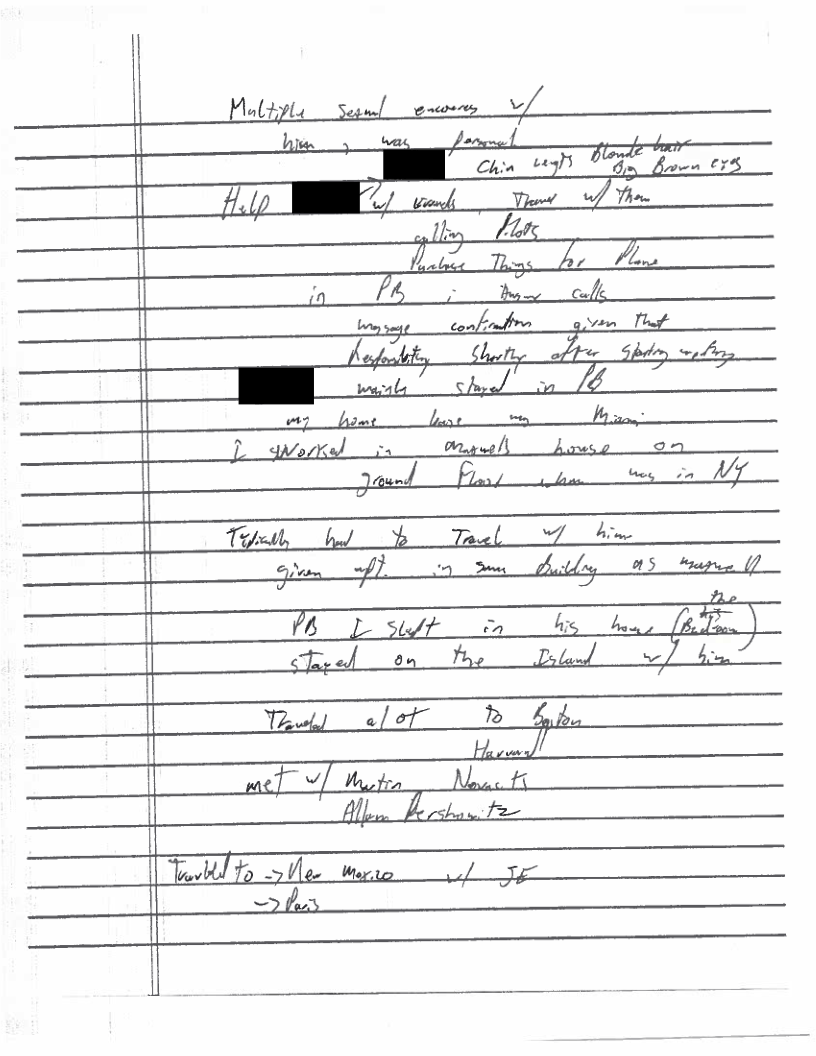 Multiple Sexual encounters w/
him, was personal
Chin length Blonde hair
Big Brown eyes
Help w/ errands, Travel w/ Them
calling Pilots
Purchase Things for Plane
in PB ; Answer calls
message confirmation given that
Responsibility Shortly after starting
mainly stayed in PB
my home base was Miami
I worked in maxwells house on
ground Floor when was in NY
Typically had to Travel w/ him
given apt. in same building as
the
PB I Slept in his house (Bedroom)
stayed on the Island w/ him
Traveled alot to Boston
Harvard
met w/ Martin
Allan Dershowitz
Traveled to -> New Mexico w/ JE
-> Paris